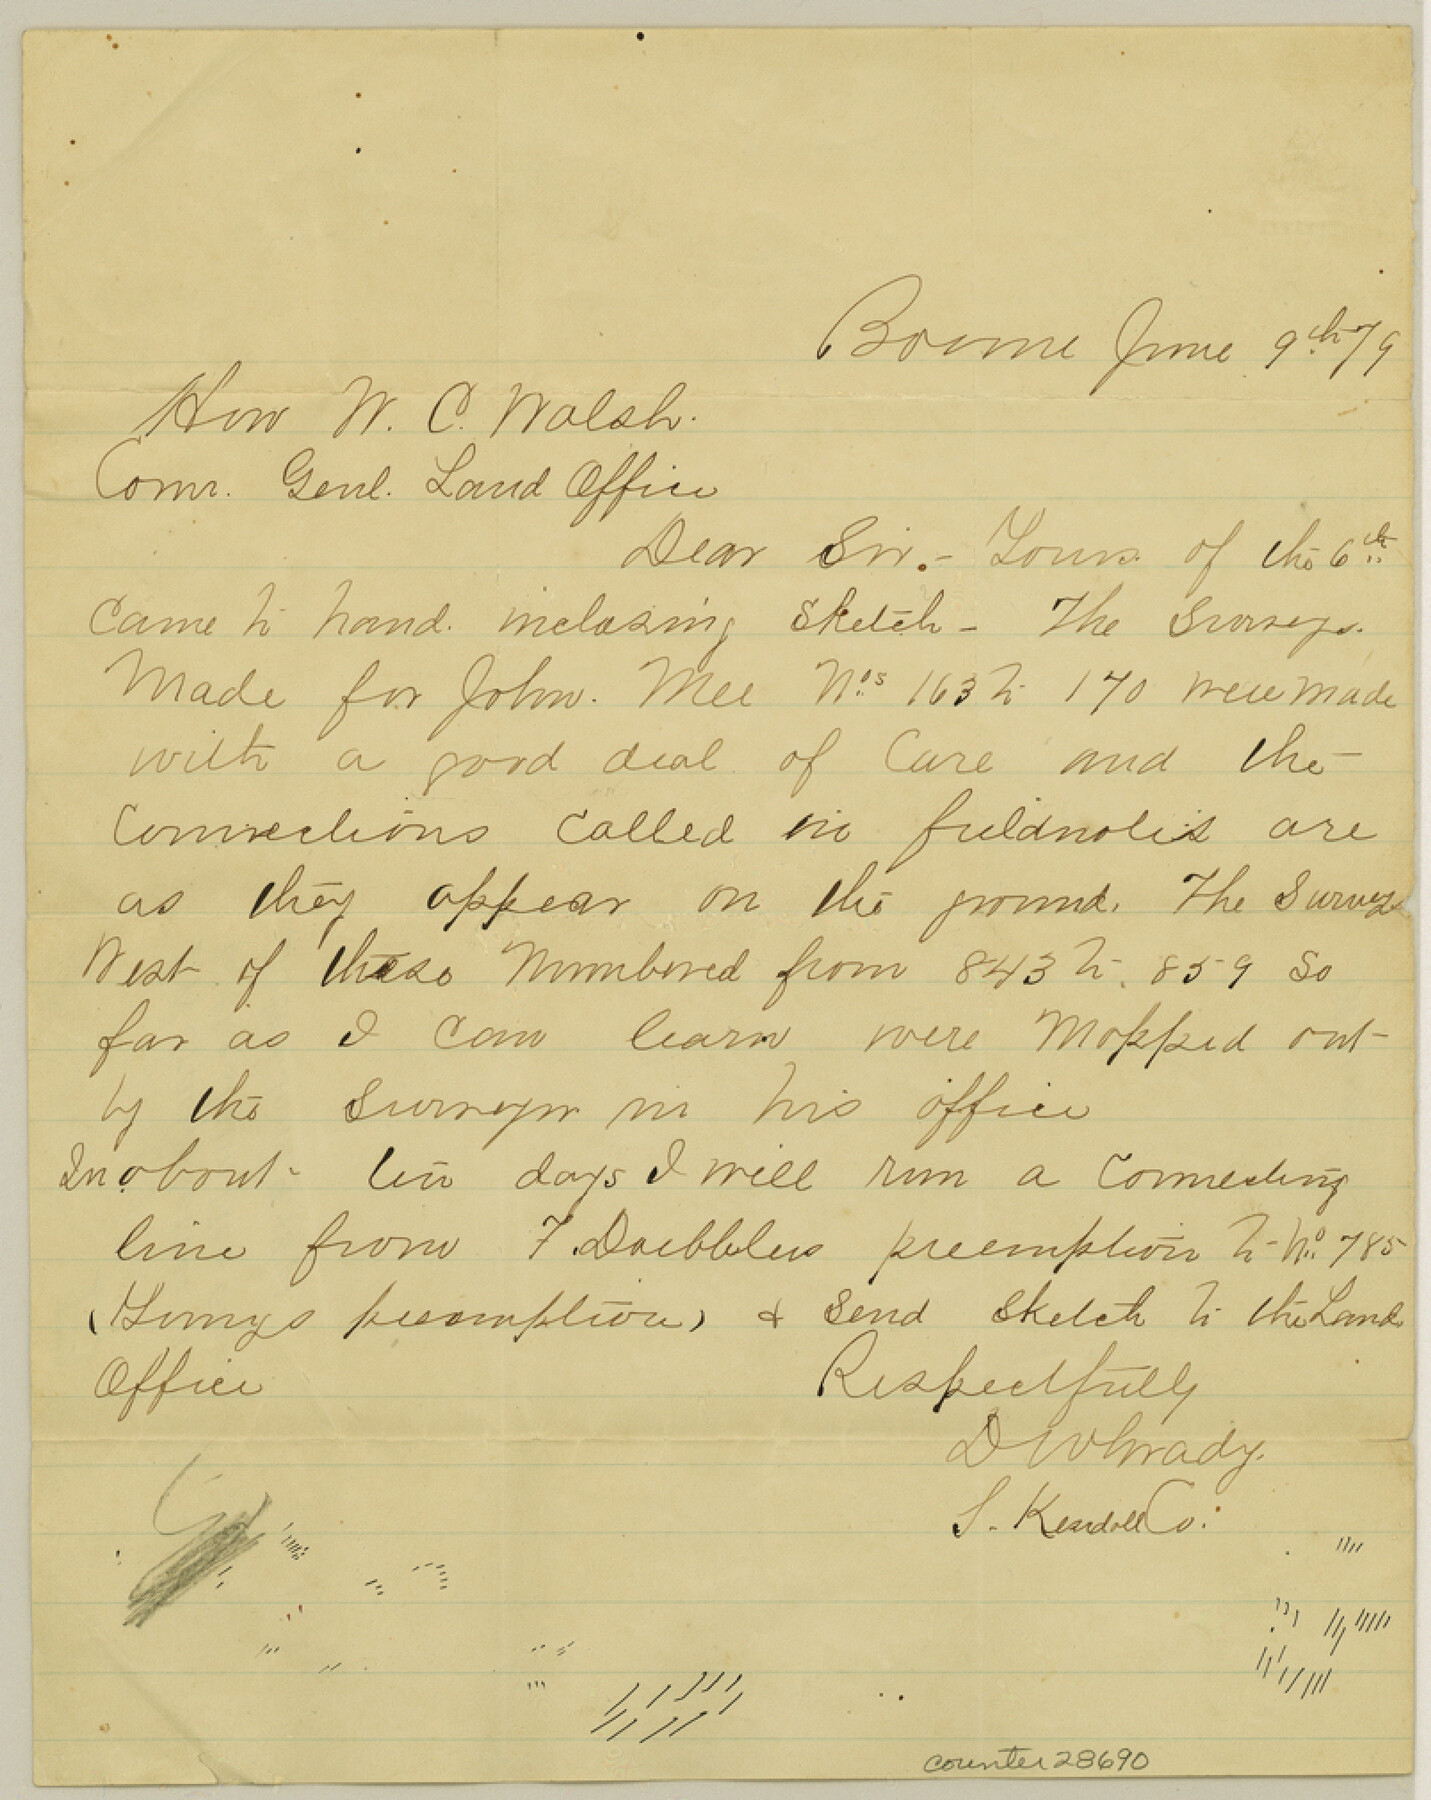 Boerne June 9th 79
Hon W. C. Walsh.
Comr. Genl. Land Office
Dear Sir.- Yours of the 6th
Came to hand. inclosing Sketch - The Surveys.
Made for John. Mee Nos 163 to 170 were made
with a good deal of Care and the
Connections Called in fieldnotes are
as they appear on the ground. The Surveys
West of these Numbered from 843 to 859 So
far as I can learn were Mapped out
by the Surveyor in his office
In about ten days I will run a Connecting
line from F. Doebblers preemption to No. 785
( preemption) & Send Sketch to the Land
Office Respectfully
D W
S. Kendall Co.
counter 28690